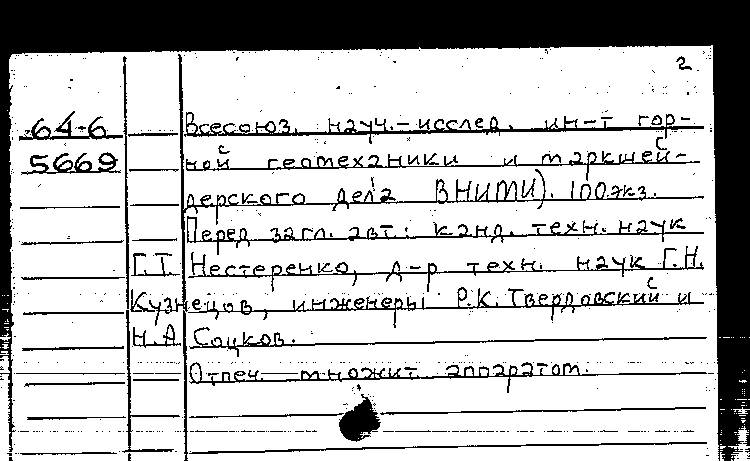 2
64-6 Всесоюз. науч.-исслед. ин-т гор-
5669 ной геомеханики и маркшей-
дерского дела ВНИМИ). 100 экз.
Перед загл. авт.: канд. техн. наук
Г.Т. Нестеренко, д-р техн. наук Г.Н.
Кузнецов, инженеры Р.К. Твердовский и
Н.А Соцков.
Отпеч. множит аппаратом.